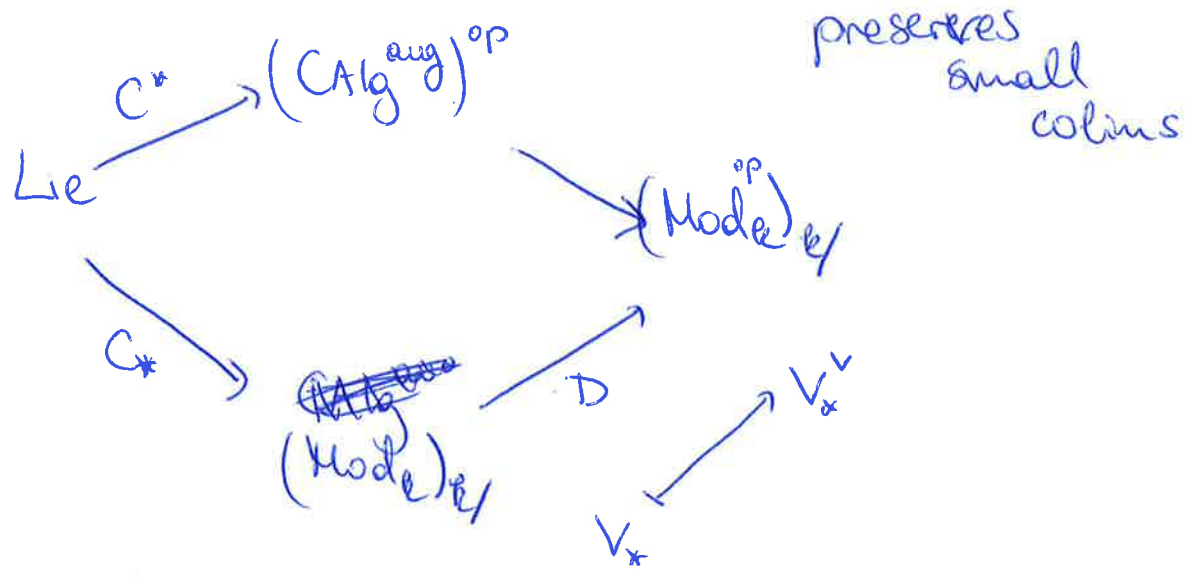 preserves
small
colims
C*
(CAlg^aug)^op
Lie
(Mod_k^op)_k/
C_*
D
(Mod_k)_k/
V_*^∨
V_*